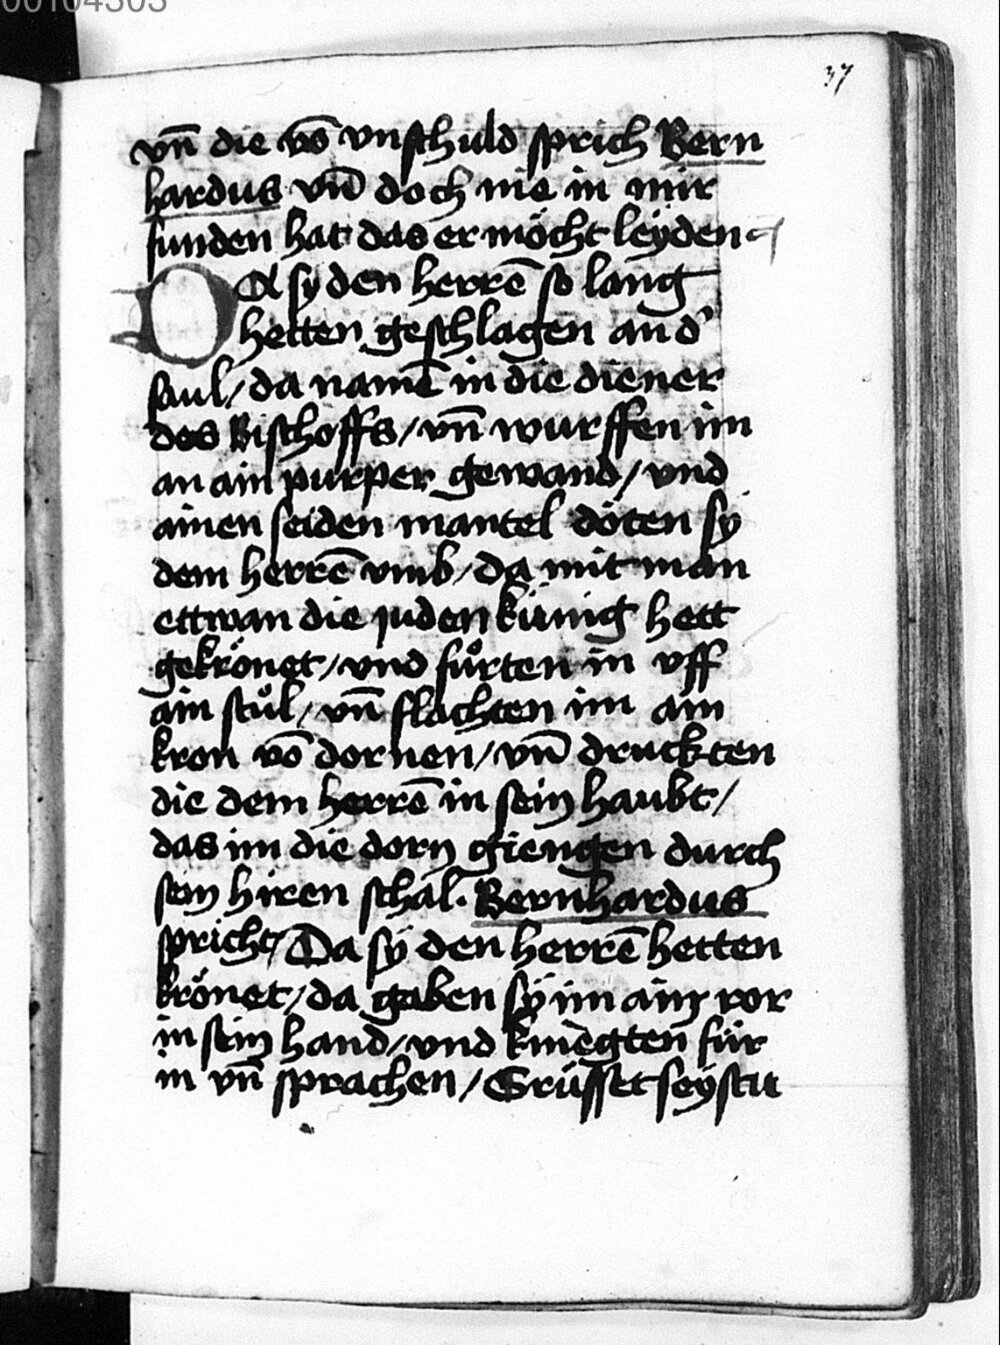 00104303
37
vn̄ die vō vnschuld sprich Bern
hardus vn̄ doch nie in mir
funden hat das er möcht leÿden
DA sÿ den herrē so lang
hetten geschlagen an d'
saul / da namē in die diener
des Bischoffs / vn̄ wurffen im
an ain purper gewand / vnd
ainen seiden mantel döten sÿ
dem herrē vmb / da mit man
ettwan die juden künig hett
gekrönet / vnd fůrten in vff
ain stůl / vn̄ flachten im ain
kron vō dornen / vn̄ druckten
die dem herrē in sein haubt /
das im die dorn giengen durch
sein hiren schal · Bernhardus
spricht / Da sÿ den herrē hetten
krönet / da gaben sÿ im ain ror
in sein hand / vnd knÿegten für
in vn̄ sprachen / Grüsset seÿstu